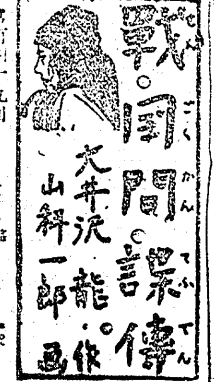 戰国間諜傳
せんごくかんてふでん
大井沢龍作
山科一郎画